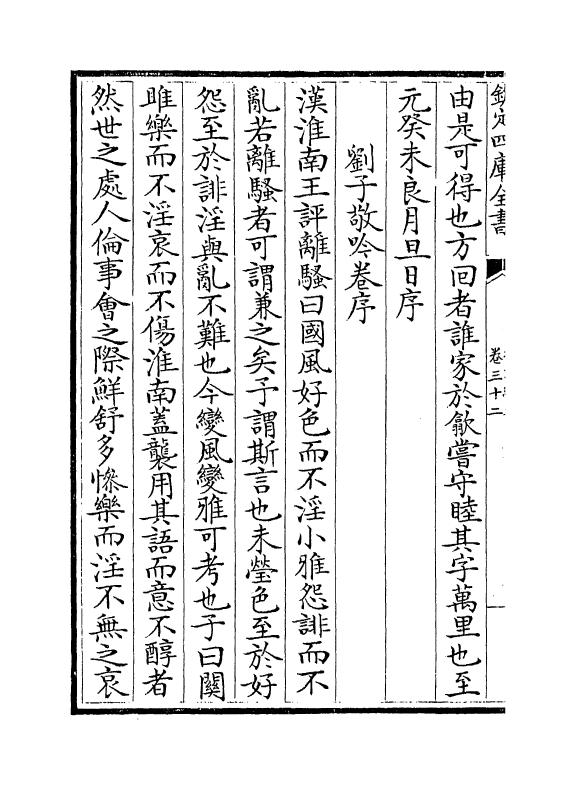 欽定四庫全書
卷三十二
由是可得也方回者誰家於歙嘗守睦其字萬里也至
元癸未良月旦日序
劉子敬吟卷序
漢淮南王評離騷曰國風好色而不淫小雅怨誹而不
亂若離騷者可謂兼之矣予謂斯言也未瑩色至於好
怨至於誹淫與亂不難也今變風變雅可考也子曰關
雎樂而不淫哀而不傷淮南蓋襲用其語而意不醇者
然世之處人倫事會之際鮮舒多慘樂而淫不無之哀